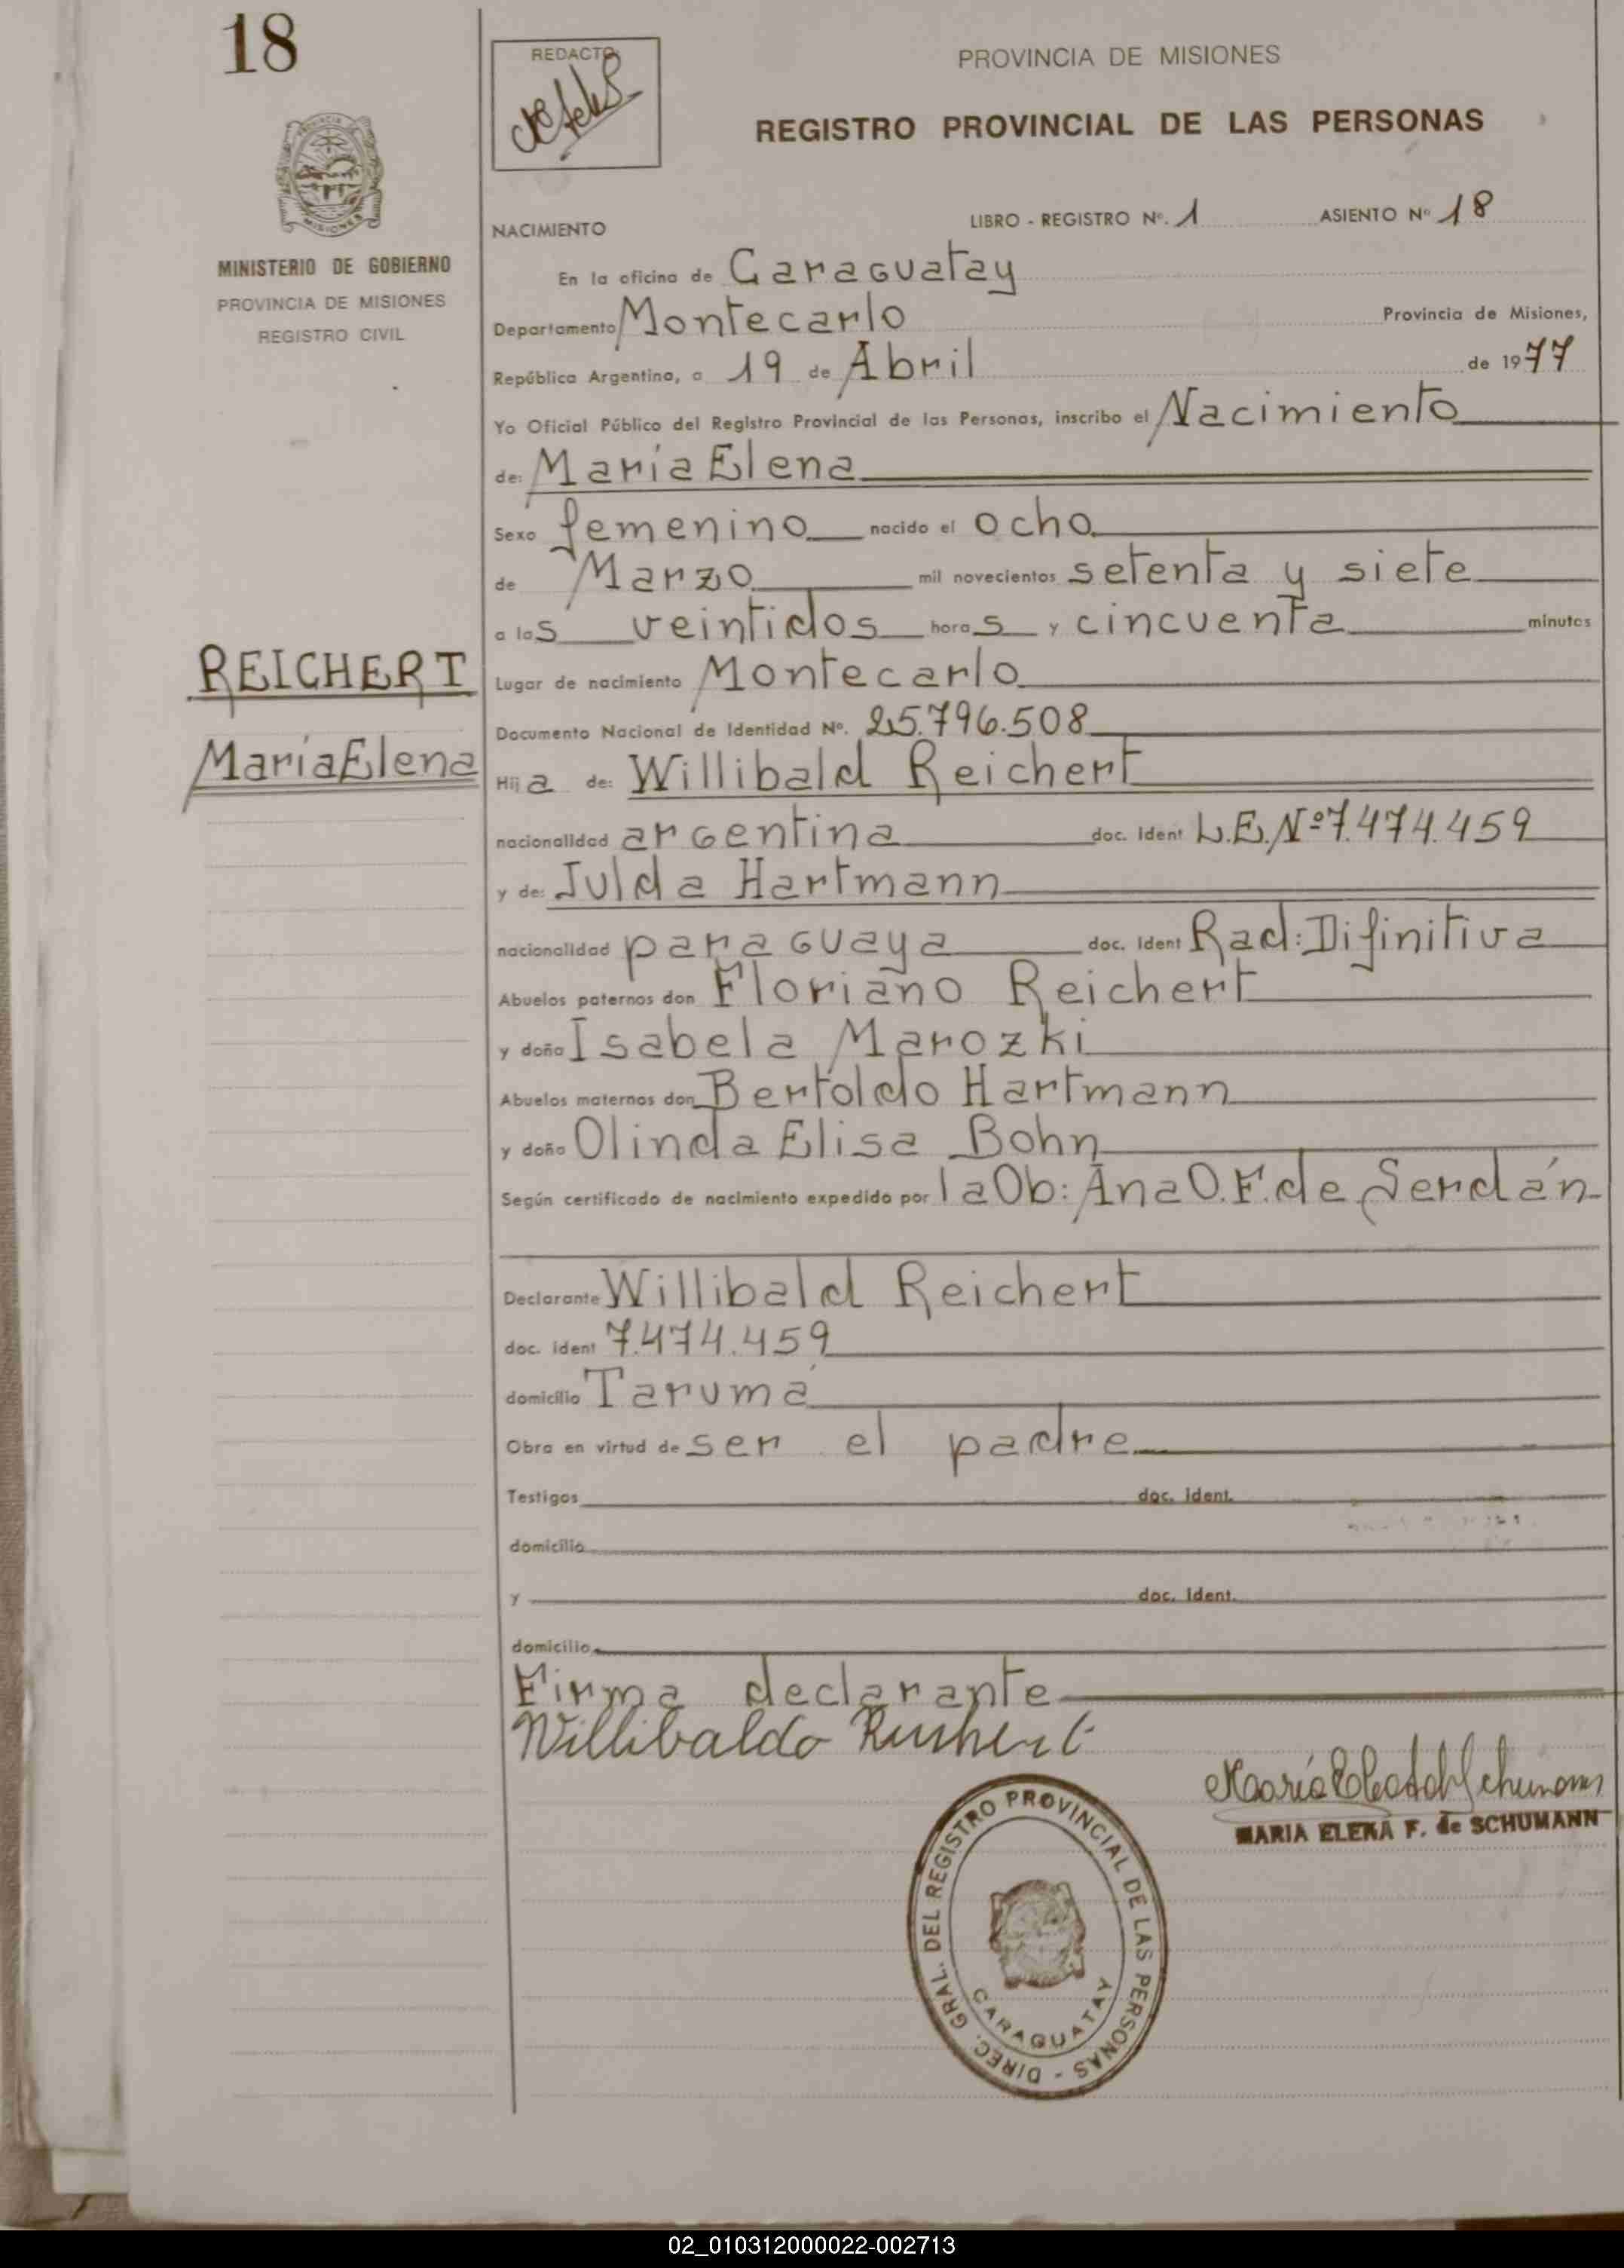 18
REDACTO:
PROVINCIA DE MISIONES
REGISTRO PROVINCIAL DE LAS PERSONAS
MINISTERIO DE GOBIERNO
PROVINCIA DE MISIONES
REGISTRO CIVIL
NACIMIENTO LIBRO - REGISTRO Nº. 1 ASIENTO Nº 18
En la oficina de Caraguatay
Departamento Montecarlo Provincia de Misiones,
República Argentina, a 19 de Abril de 1977
Yo Oficial Público del Registro Provincial de las Personas, inscribo el Nacimiento
de: María Elena
Sexo femenino nacido el ocho
de Marzo mil novecientos setenta y siete
a las veintidos horas y cincuenta minutos
REICHERT
María Elena
Lugar de nacimiento Montecarlo
Documento Nacional de Identidad Nº. 25.796.508
Hija de: Willibald Reichert
nacionalidad argentina doc. ident L.E. Nº 7.474.459
y de: Julda Hartmann
nacionalidad paraguaya doc. ident Rad: Difinitiva
Abuelos paternos don Floriano Reichert
y doña Isabela Marozki
Abuelos maternos don Bertoldo Hartmann
y doña Olinda Elisa Bohn
Según certificado de nacimiento expedido por la Ob: Ana O. F. de Serdán
Declarante Willibald Reichert
doc. ident 7.474.459
domicilio Tarumá
Obra en virtud de ser el padre
Testigos doc. ident.
domicilio
y doc. ident.
domicilio
Firma declarante
Willibaldo
MARIA ELENA F. de SCHUMANN
DIREC. GRAL. DEL REGISTRO PROVINCIAL DE LAS PERSONAS -
CARAGUATAY
02_010312000022-002713